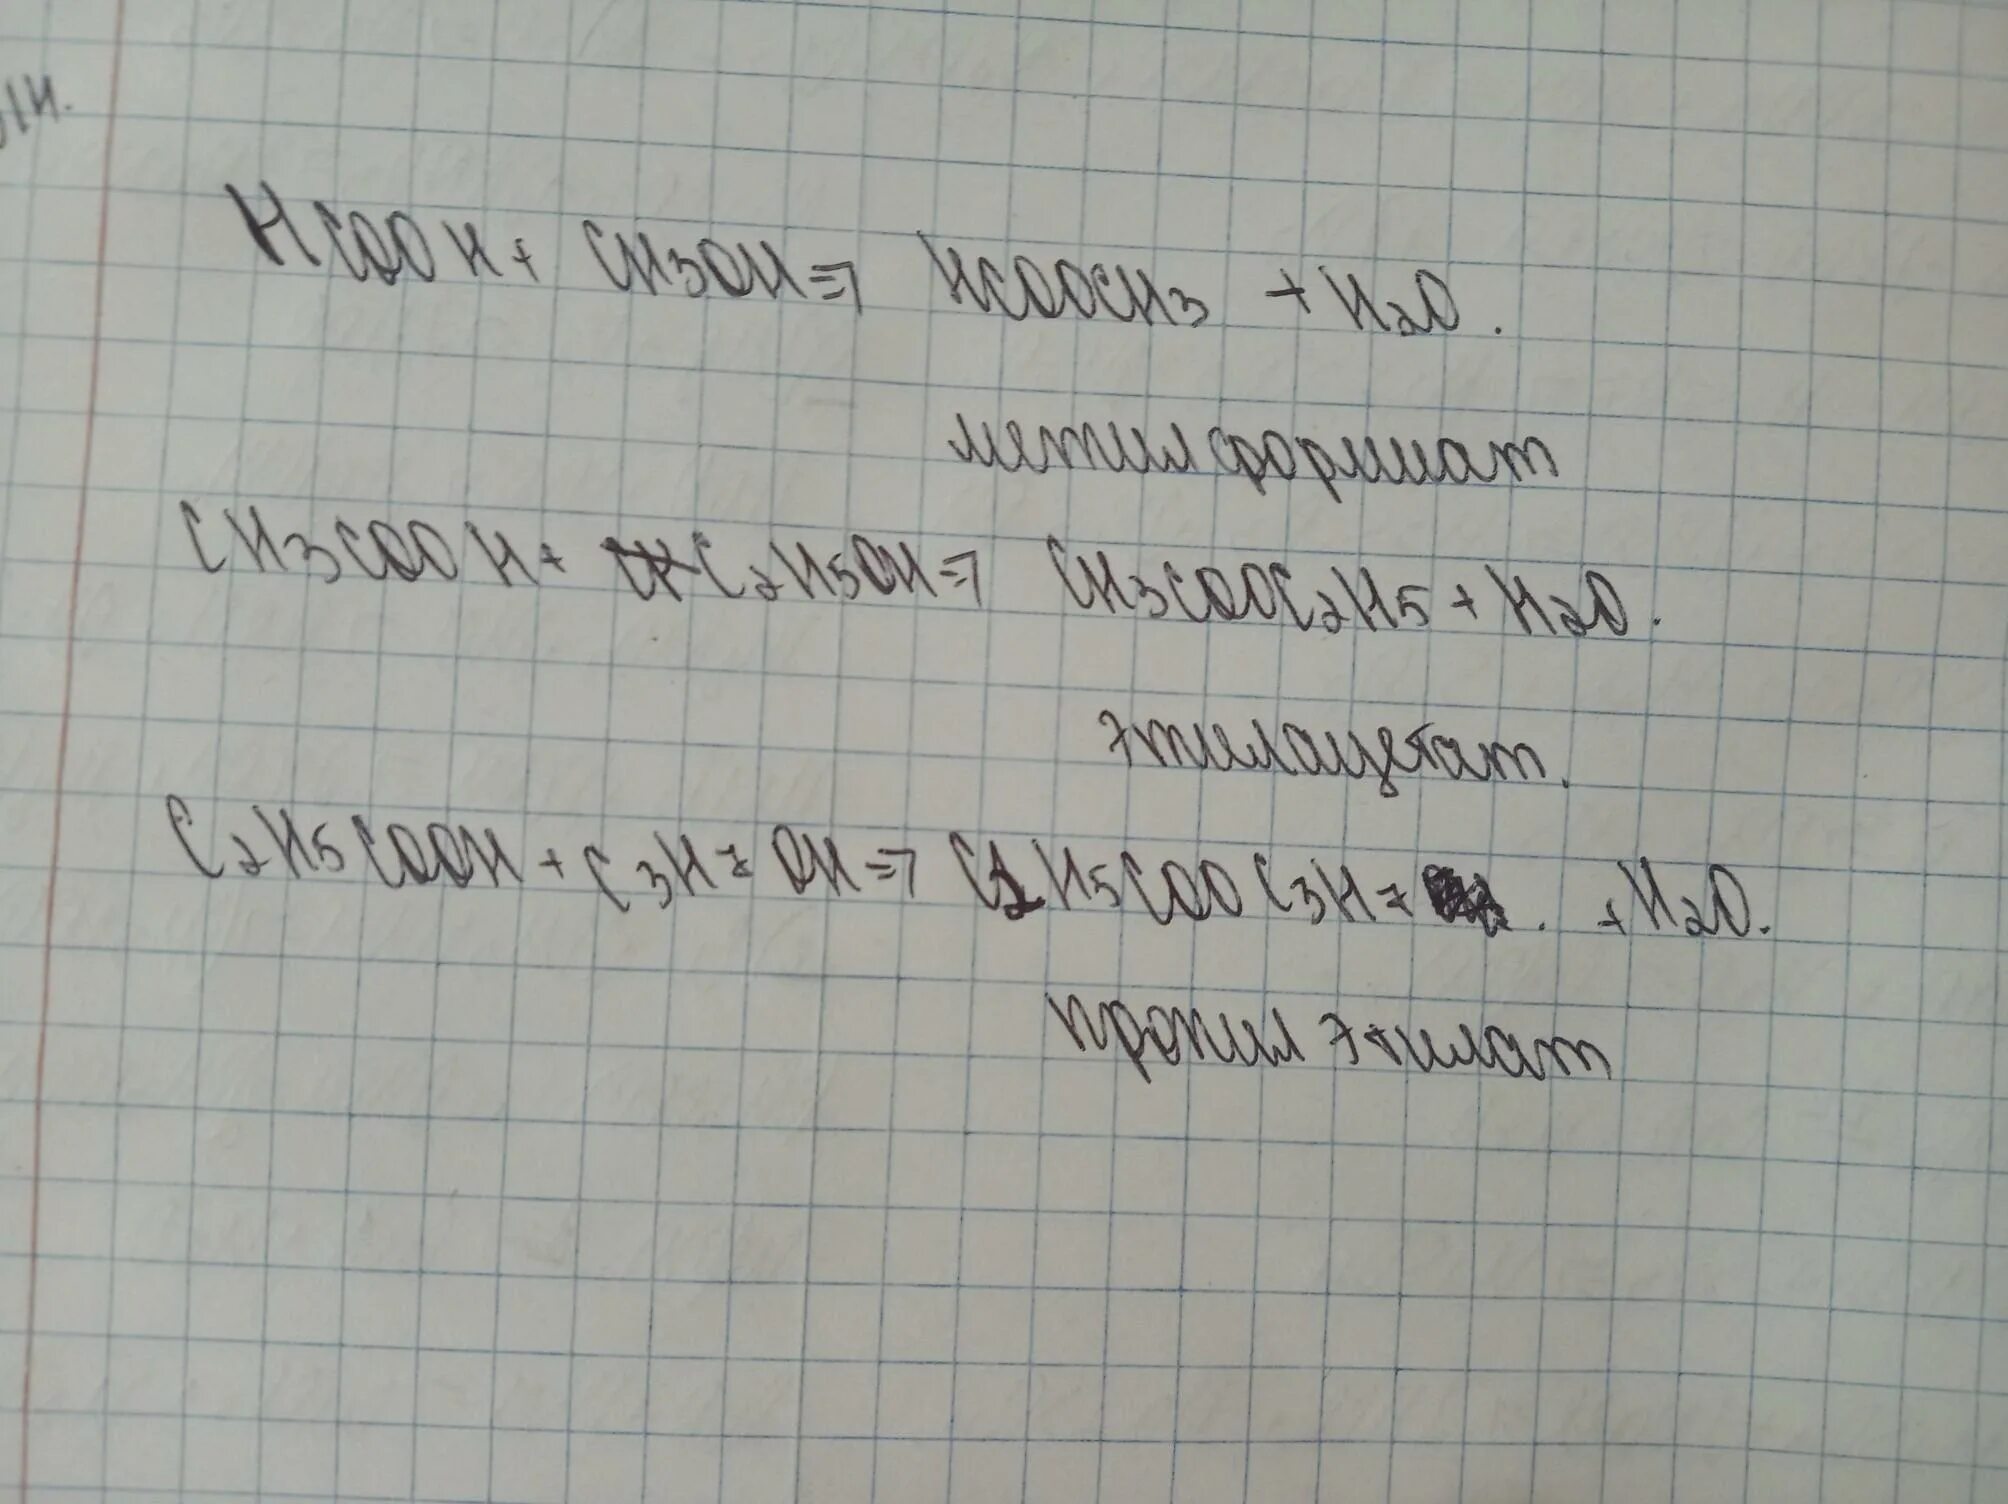 HCOOH + CH3OH => HCOOCH3 + H2O.
метилформиат
CH3COOH + C2H5OH => CH3COOC2H5 + H2O.
этилацетат.
C2H5COOH + C3H7OH => C2H5COOC3H7. + H2O.
пропил этилат